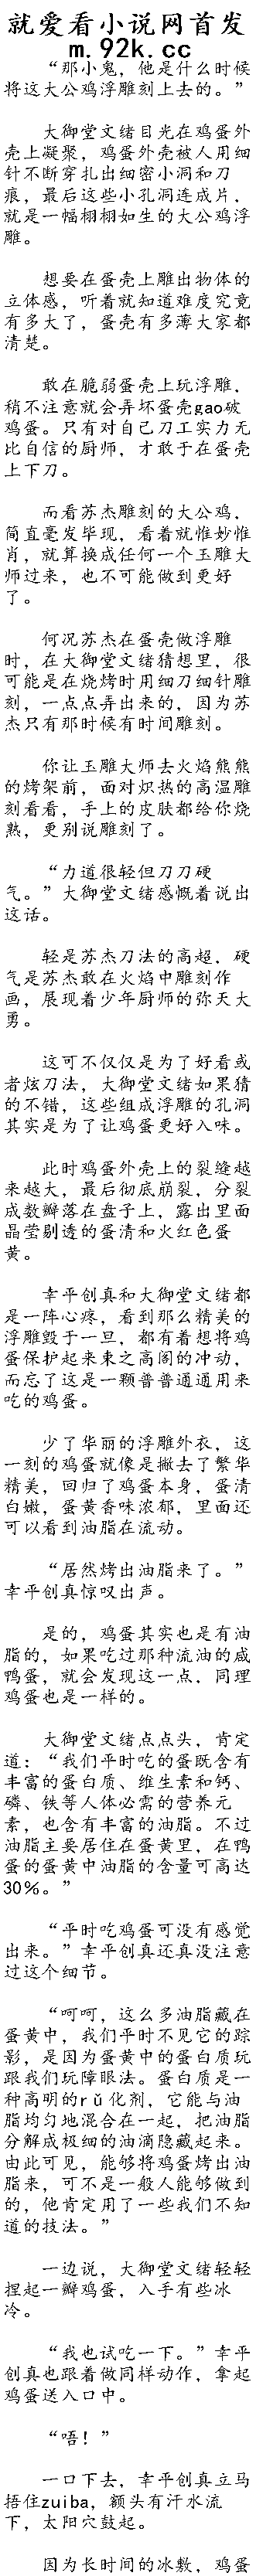 就爱看小说网首发
m.92k.cc
“那小鬼，他是什么时候
将这大公鸡浮雕刻上去的。”
大御堂文绪目光在鸡蛋外
壳上凝聚，鸡蛋外壳被人用细
针不断穿扎出细密小洞和刀
痕，最后这些小孔洞连成片，
就是一幅栩栩如生的大公鸡浮
雕。
想要在蛋壳上雕出物体的
立体感，听着就知道难度究竟
有多大了，蛋壳有多薄大家都
清楚。
敢在脆弱蛋壳上玩浮雕，
稍不注意就会弄坏蛋壳gao破
鸡蛋。只有对自己刀工实力无
比自信的厨师，才敢于在蛋壳
上下刀。
而看苏杰雕刻的大公鸡，
简直毫发毕现，看着就惟妙惟
肖，就算换成任何一个玉雕大
师过来，也不可能做到更好
了。
何况苏杰在蛋壳做浮雕
时，在大御堂文绪猜想里，很
可能是在烧烤时用细刀细针雕
刻，一点点弄出来的，因为苏
杰只有那时候有时间雕刻。
你让玉雕大师去火焰熊熊
的烤架前，面对炽热的高温雕
刻看看，手上的皮肤都给你烧
熟，更别说雕刻了。
“力道很轻但刀刀硬
气。”大御堂文绪感慨着说出
这话。
轻是苏杰刀法的高超，硬
气是苏杰敢在火焰中雕刻作
画，展现着少年厨师的弥天大
勇。
这可不仅仅是为了好看或
者炫刀法，大御堂文绪如果猜
的不错，这些组成浮雕的孔洞
其实是为了让鸡蛋更好入味。
此时鸡蛋外壳上的裂缝越
来越大，最后彻底崩裂，分裂
成数瓣落在盘子上，露出里面
晶莹剔透的蛋清和火红色蛋
黄。
幸平创真和大御堂文绪都
是一阵心疼，看到那么精美的
浮雕毁于一旦，都有着想将鸡
蛋保护起来束之高阁的冲动，
而忘了这是一颗普普通通用来
吃的鸡蛋。
少了华丽的浮雕外衣，这
一刻的鸡蛋就像是撇去了繁华
精美，回归了鸡蛋本身，蛋清
白嫩，蛋黄香味浓郁，里面还
可以看到油脂在流动。
“居然烤出油脂来了。”
幸平创真惊叹出声。
是的，鸡蛋其实也是有油
脂的，如果吃过那种流油的咸
鸭蛋，就会发现这一点，同理
鸡蛋也是一样的。
大御堂文绪点点头，肯定
道：“我们平时吃的蛋既含有
丰富的蛋白质、维生素和钙、
磷、铁等人体必需的营养元
素，也含有丰富的油脂。不过
油脂主要居住在蛋黄里，在鸭
蛋的蛋黄中油脂的含量可高达
30%。”
“平时吃鸡蛋可没有感觉
出来。”幸平创真还真没注意
过这个细节。
“呵呵，这么多油脂藏在
蛋黄中，我们平时不见它的踪
影，是因为蛋黄中的蛋白质玩
跟我们玩障眼法。蛋白质是一
种高明的rǔ化剂，它能与油
脂均匀地混合在一起，把油脂
分解成极细的油滴隐藏起来。
由此可见，能够将鸡蛋烤出油
脂来，可不是一般人能够做到
的，他肯定用了一些我们不知
道的技法。”
一边说，大御堂文绪轻轻
捏起一瓣鸡蛋，入手有些冰
冷。
“我也试吃一下。”幸平
创真也跟着做同样动作，拿起
鸡蛋送入口中。
“唔！”
一口下去，幸平创真立马
捂住zuiba，额头有汗水流
下，太阳穴鼓起。
因为长时间的冰敷，鸡蛋